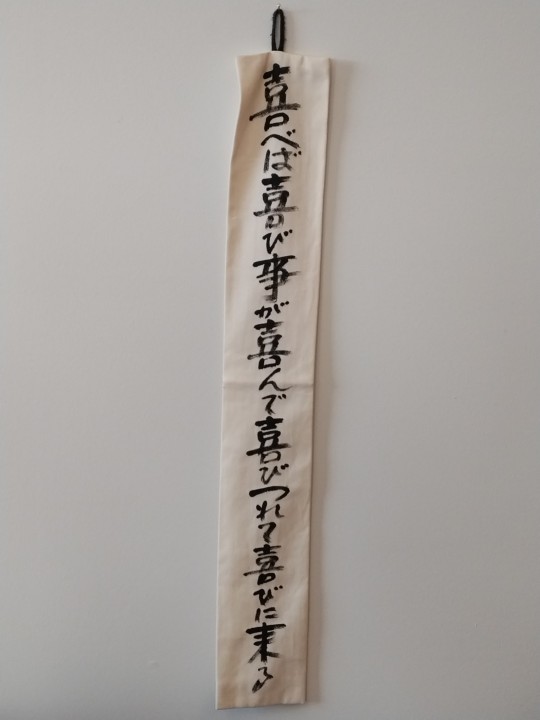 喜べば喜び事が喜んで喜びつれて喜びに来る